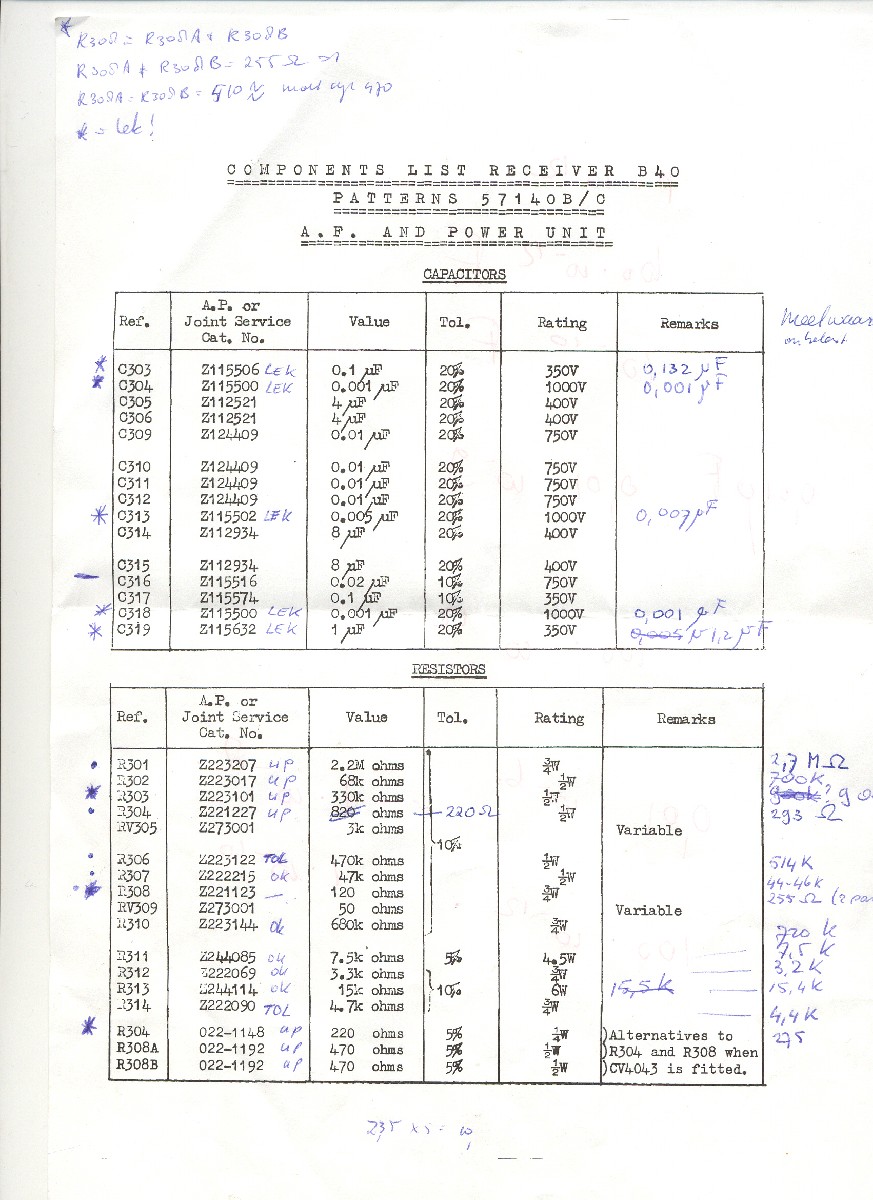 * R308 = R308A + R308B
R308A + R308B = 255 Ω
R308A = R308B = 510
* = lek!
COMPONENTS LIST RECEIVER B40
PATTERNS 57140B/C
A.F. AND POWER UNIT
CAPACITORS
Ref. A.P. or Joint Service Cat. No. Value Tol. Rating Remarks
* C303 Z115506 LEK 0.1 µF 20% 350V 0,132 µF
* C304 Z115500 LEK 0.001 µF 20% 1000V 0,001 µF
C305 Z112521 4 µF 20% 400V
C306 Z112521 4 µF 20% 400V
C309 Z124409 0.01 µF 20% 750V
C310 Z124409 0.01 µF 20% 750V
C311 Z124409 0.01 µF 20% 750V
C312 Z124409 0.01 µF 20% 750V
* C313 Z115502 LEK 0.005 µF 20% 1000V 0,007 µF
C314 Z112934 8 µF 20% 400V
C315 Z112934 8 µF 20% 400V
— C316 Z115516 0.02 µF 10% 750V
C317 Z115574 0.1 µF 10% 350V
* C318 Z115500 LEK 0.001 µF 20% 1000V 0,001 µF
* C319 Z115632 LEK 1 µF 20% 350V 0,005 µ 1,2 µF
RESISTORS
Ref. A.P. or Joint Service Cat. No. Value Tol. Rating Remarks
• R301 Z223207 up 2.2M ohms ¾W 2,7 MΩ
R302 Z223017 up 68k ohms ½W 700K
* R303 Z223101 up 330k ohms ½W
• R304 Z221227 up 820 ohms 220Ω ½W 293 Ω
RV305 Z273001 3k ohms Variable
10%
• R306 Z223122 TOL 470k ohms ½W 514K
• R307 Z222215 ok 47k ohms ½W 44-46K
• * R308 Z221123 — 120 ohms ¾W 255 Ω
RV309 Z273001 50 ohms Variable
R310 Z223144 ok 680k ohms ¾W 720 k
R311 Z244085 ok 7.5k ohms 5% 4.5W 7,5 K
R312 Z222069 ok 3.3k ohms ¾W 3,2 K
R313 Z244114 ok 15k ohms 10% 6W 15,5k 15,4K
R314 Z222090 TOL 4.7k ohms ¾W 4,4K
* R304 022-1148 up 220 ohms 5% ¼W )Alternatives to 275
R308A 022-1192 up 470 ohms 5% ½W )R304 and R308 when
R308B 022-1192 up 470 ohms 5% ½W )CV4043 is fitted.